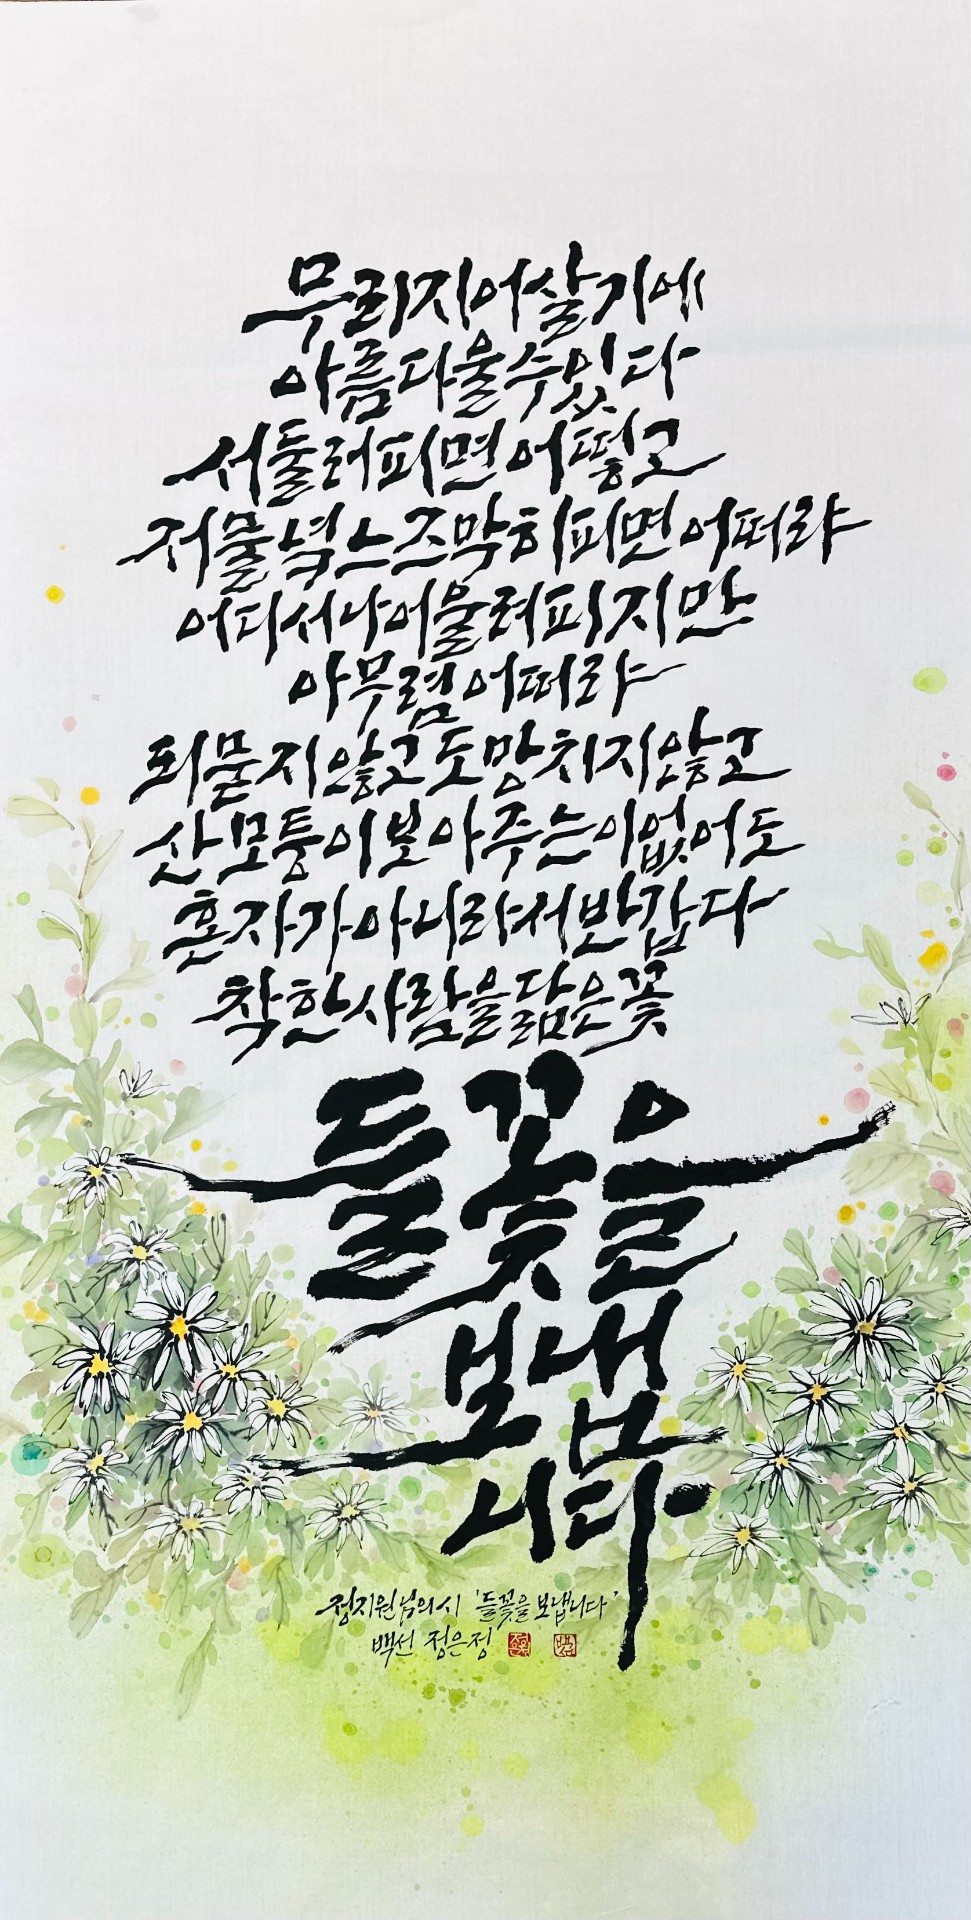 무리지어 살기에
아름다울 수 있다
서둘러 피면 어떻고
저물녘 느즈막히 피면 어떠랴
어디서나 어울려 피지만
아무렴 어떠랴
되묻지 않고 도망치지 않고
산모퉁이 보아주는 이 없어도
혼자가 아니라서 반갑다
착한 사람을 닮은 꽃
들꽃을
보냅
니다.
정지원님의 시 '들꽃을 보냅니다'
백선 정은정